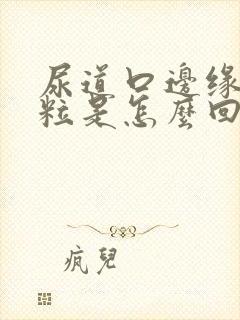 尿道口邊緣
粒是怎麼回
疯兒